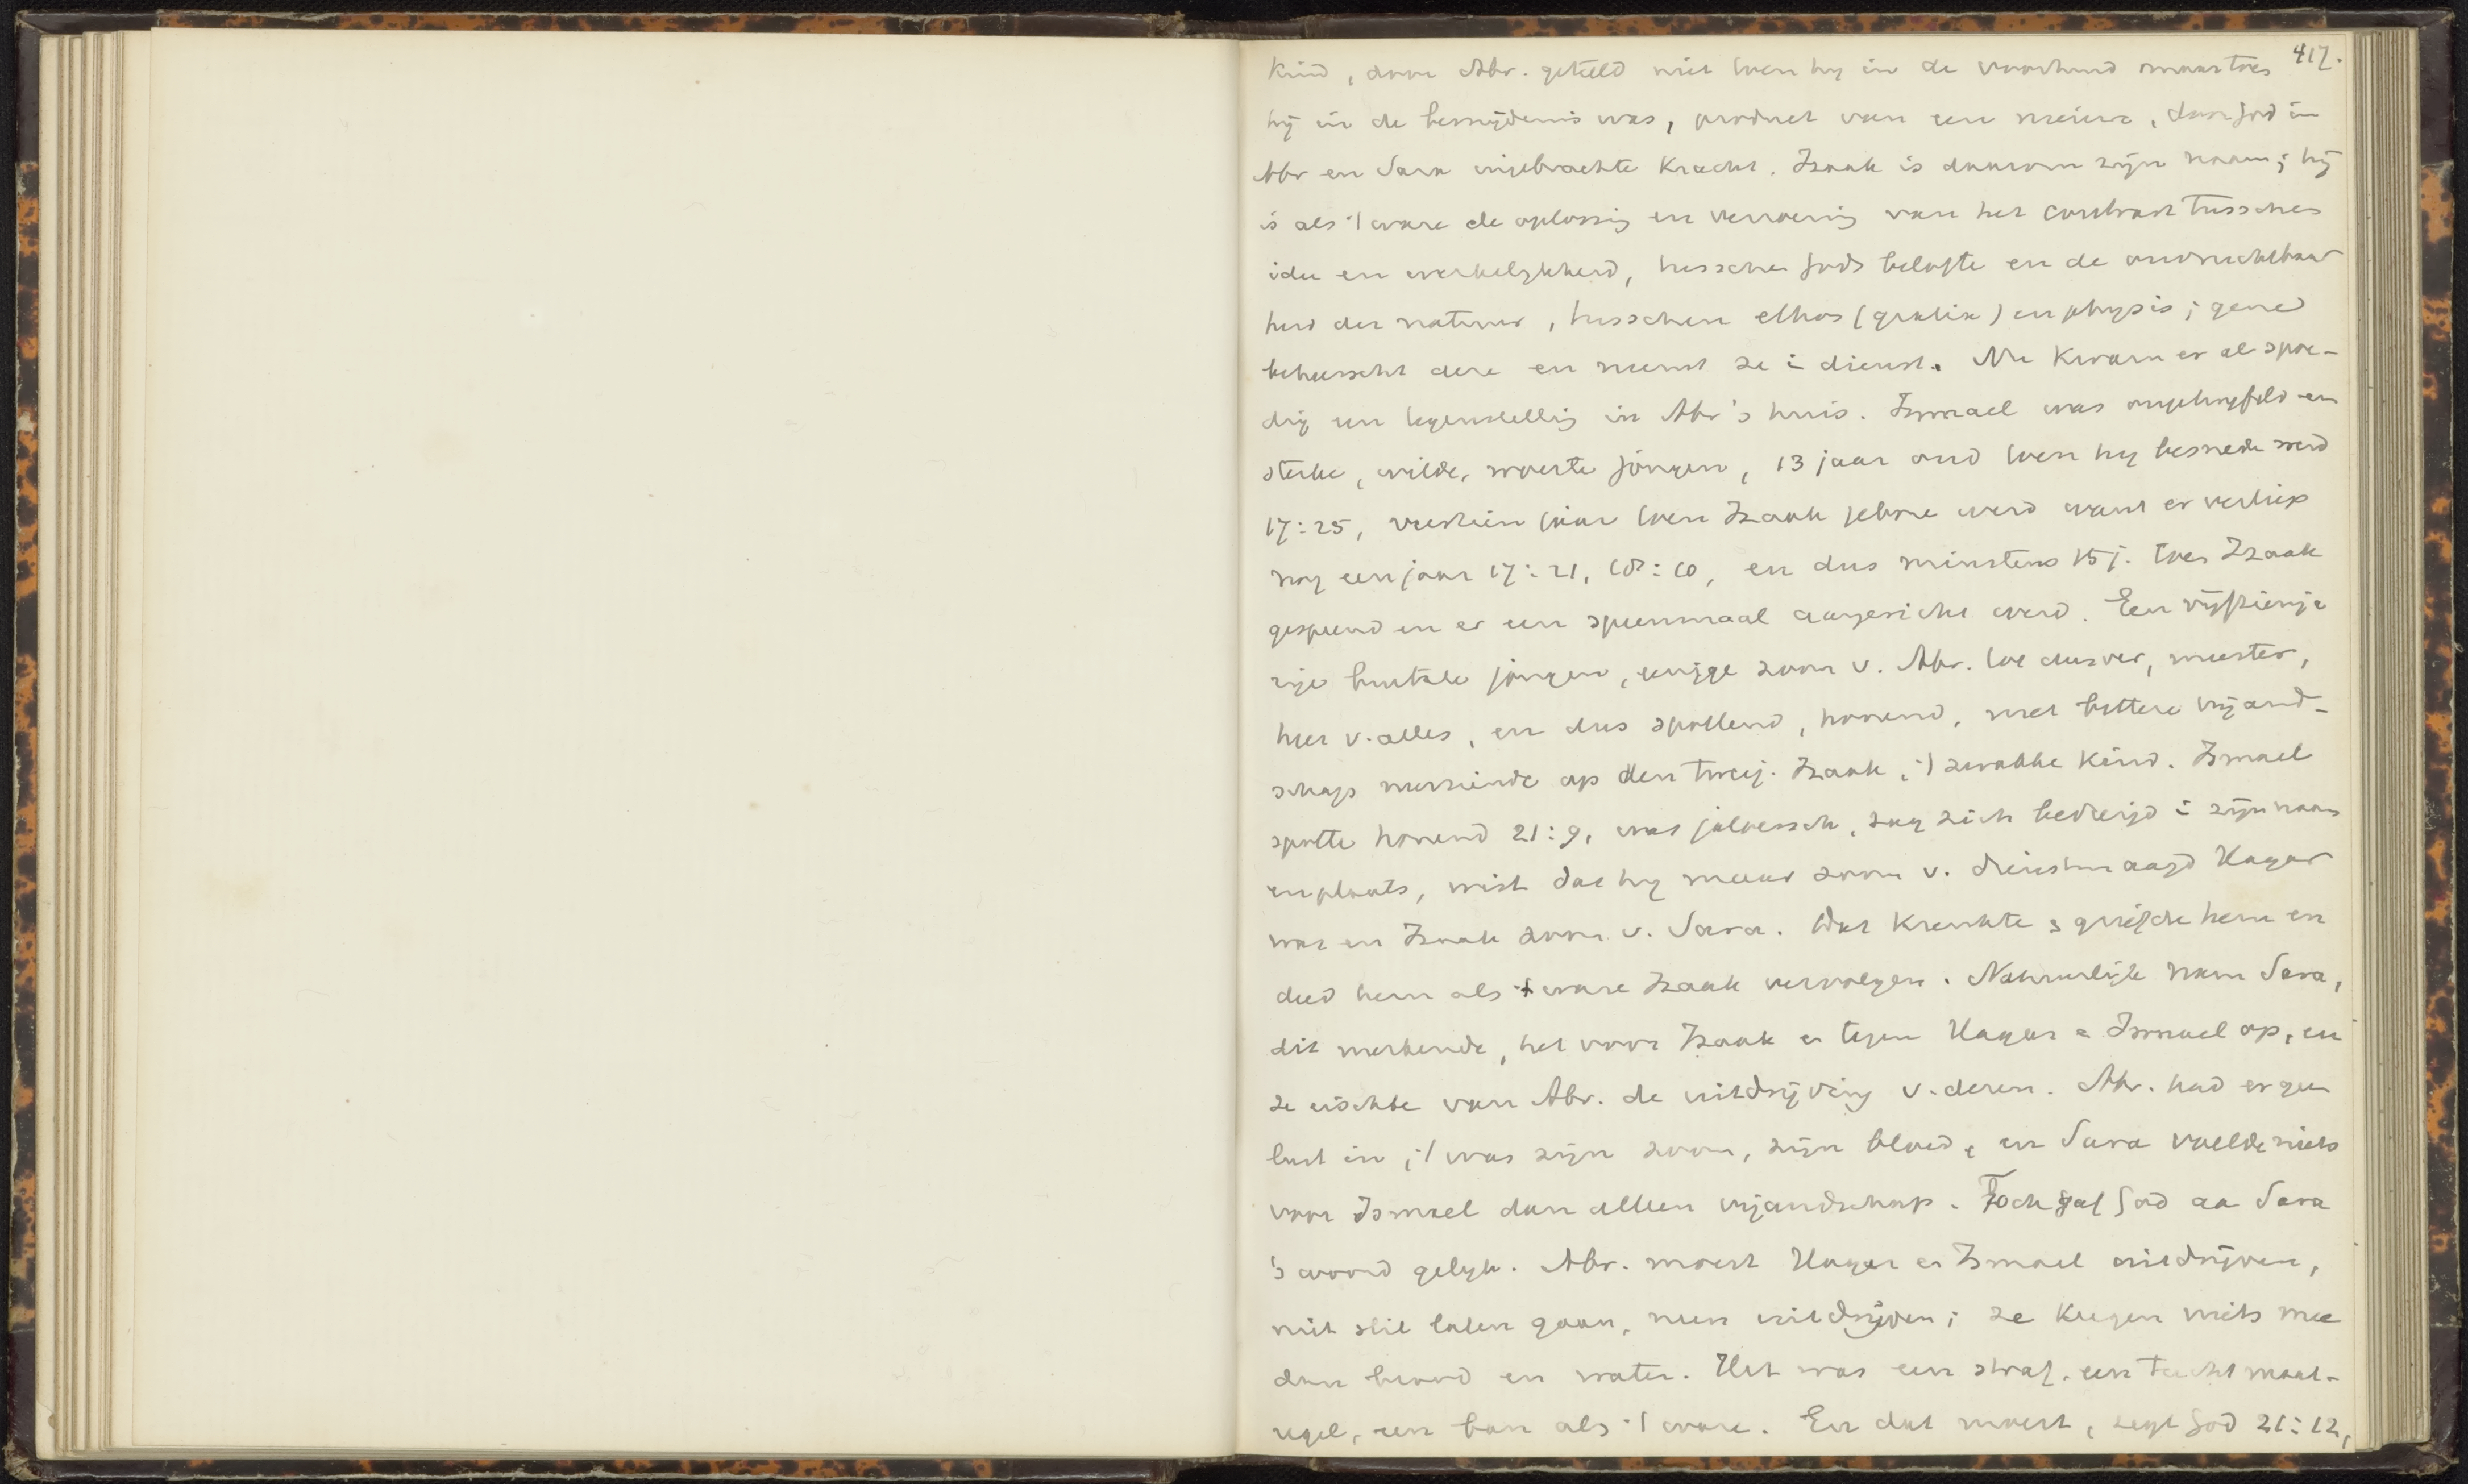 417.
Kind, door Abr. geteeld niet toen hij in de voorhuid maar toen
hij in de besnijdenis was, product van een nieuwe, door God in
Abr en Sara ingebrachte Kracht. Izaak is daarom zijn naam; hij
is als 't ware de oplossing en verzoening van het contrast tusschen
idee en werkelijkheid, tusschen Gods belofte en de onvruchtbaar
heid der natuur, tusschen ethos (gratia) en physis; gene
beheerscht deze en neemt ze in dienst. Nu kwam er al spoe-
dig een tegenstelling in Abr's huis. Ismael was een
sterke, wilde, woeste jongen, 13 jaar oud toen hij besneden werd
17:25, veertien jaar toen Izaak geboren werd want er verliep
nog een jaar 17:21, 18:10, en dus minstens 15 j. toen Izaak
gespeend en er een speenmaal aangericht werd. Een vijftienja
rige brutale jongen, eenige zoon v. Abr. toe dusver, meester,
heer v. alles, en dus spottend, honend, met bittere vijand-
schap neerziende op den tweej. Izaak, 't zwakke Kind. Ismael
spotte honend 21:9, was jaloersch, zag zich bedreigd in zijn naam
en plaats, wist dat hij maar zoon v. dienstmaagd Hagar
was en Izaak zoon v. Sara. Dat krenkte & griefde hem en
deed hem als 't ware Izaak vervolgen. Natuurlijk nam Sara,
dit merkende, het voor Izaak en tegen Hagar en Ismael op, en
ze eischte van Abr. de uitdrijving v. dezen. Abr. had er geen
lust in, 't was zijn zoon, zijn bloed, en Sara voelde niets
voor Ismael dan alleen vijandschap. Toch gaf God aan Sara
's woord gelijk. Abr. moest Hagar en Ismael uitdrijven,
niet stil laten gaan, neen uitdrijven; ze kregen niets mee
dan brood en water. Het was een straf, een tucht maat-
regel, een ban als 't ware. En dat moest, zegt God 21:12,